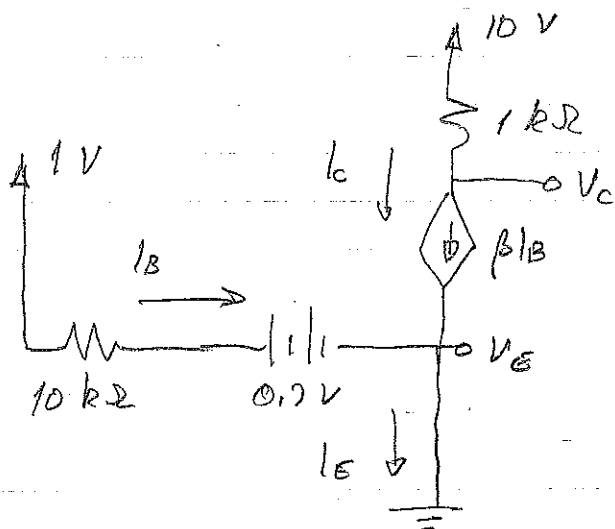 10 V
1 kΩ
1 V
I_C
V_C
βI_B
I_B
V_E
10 kΩ
0,7 V
I_E